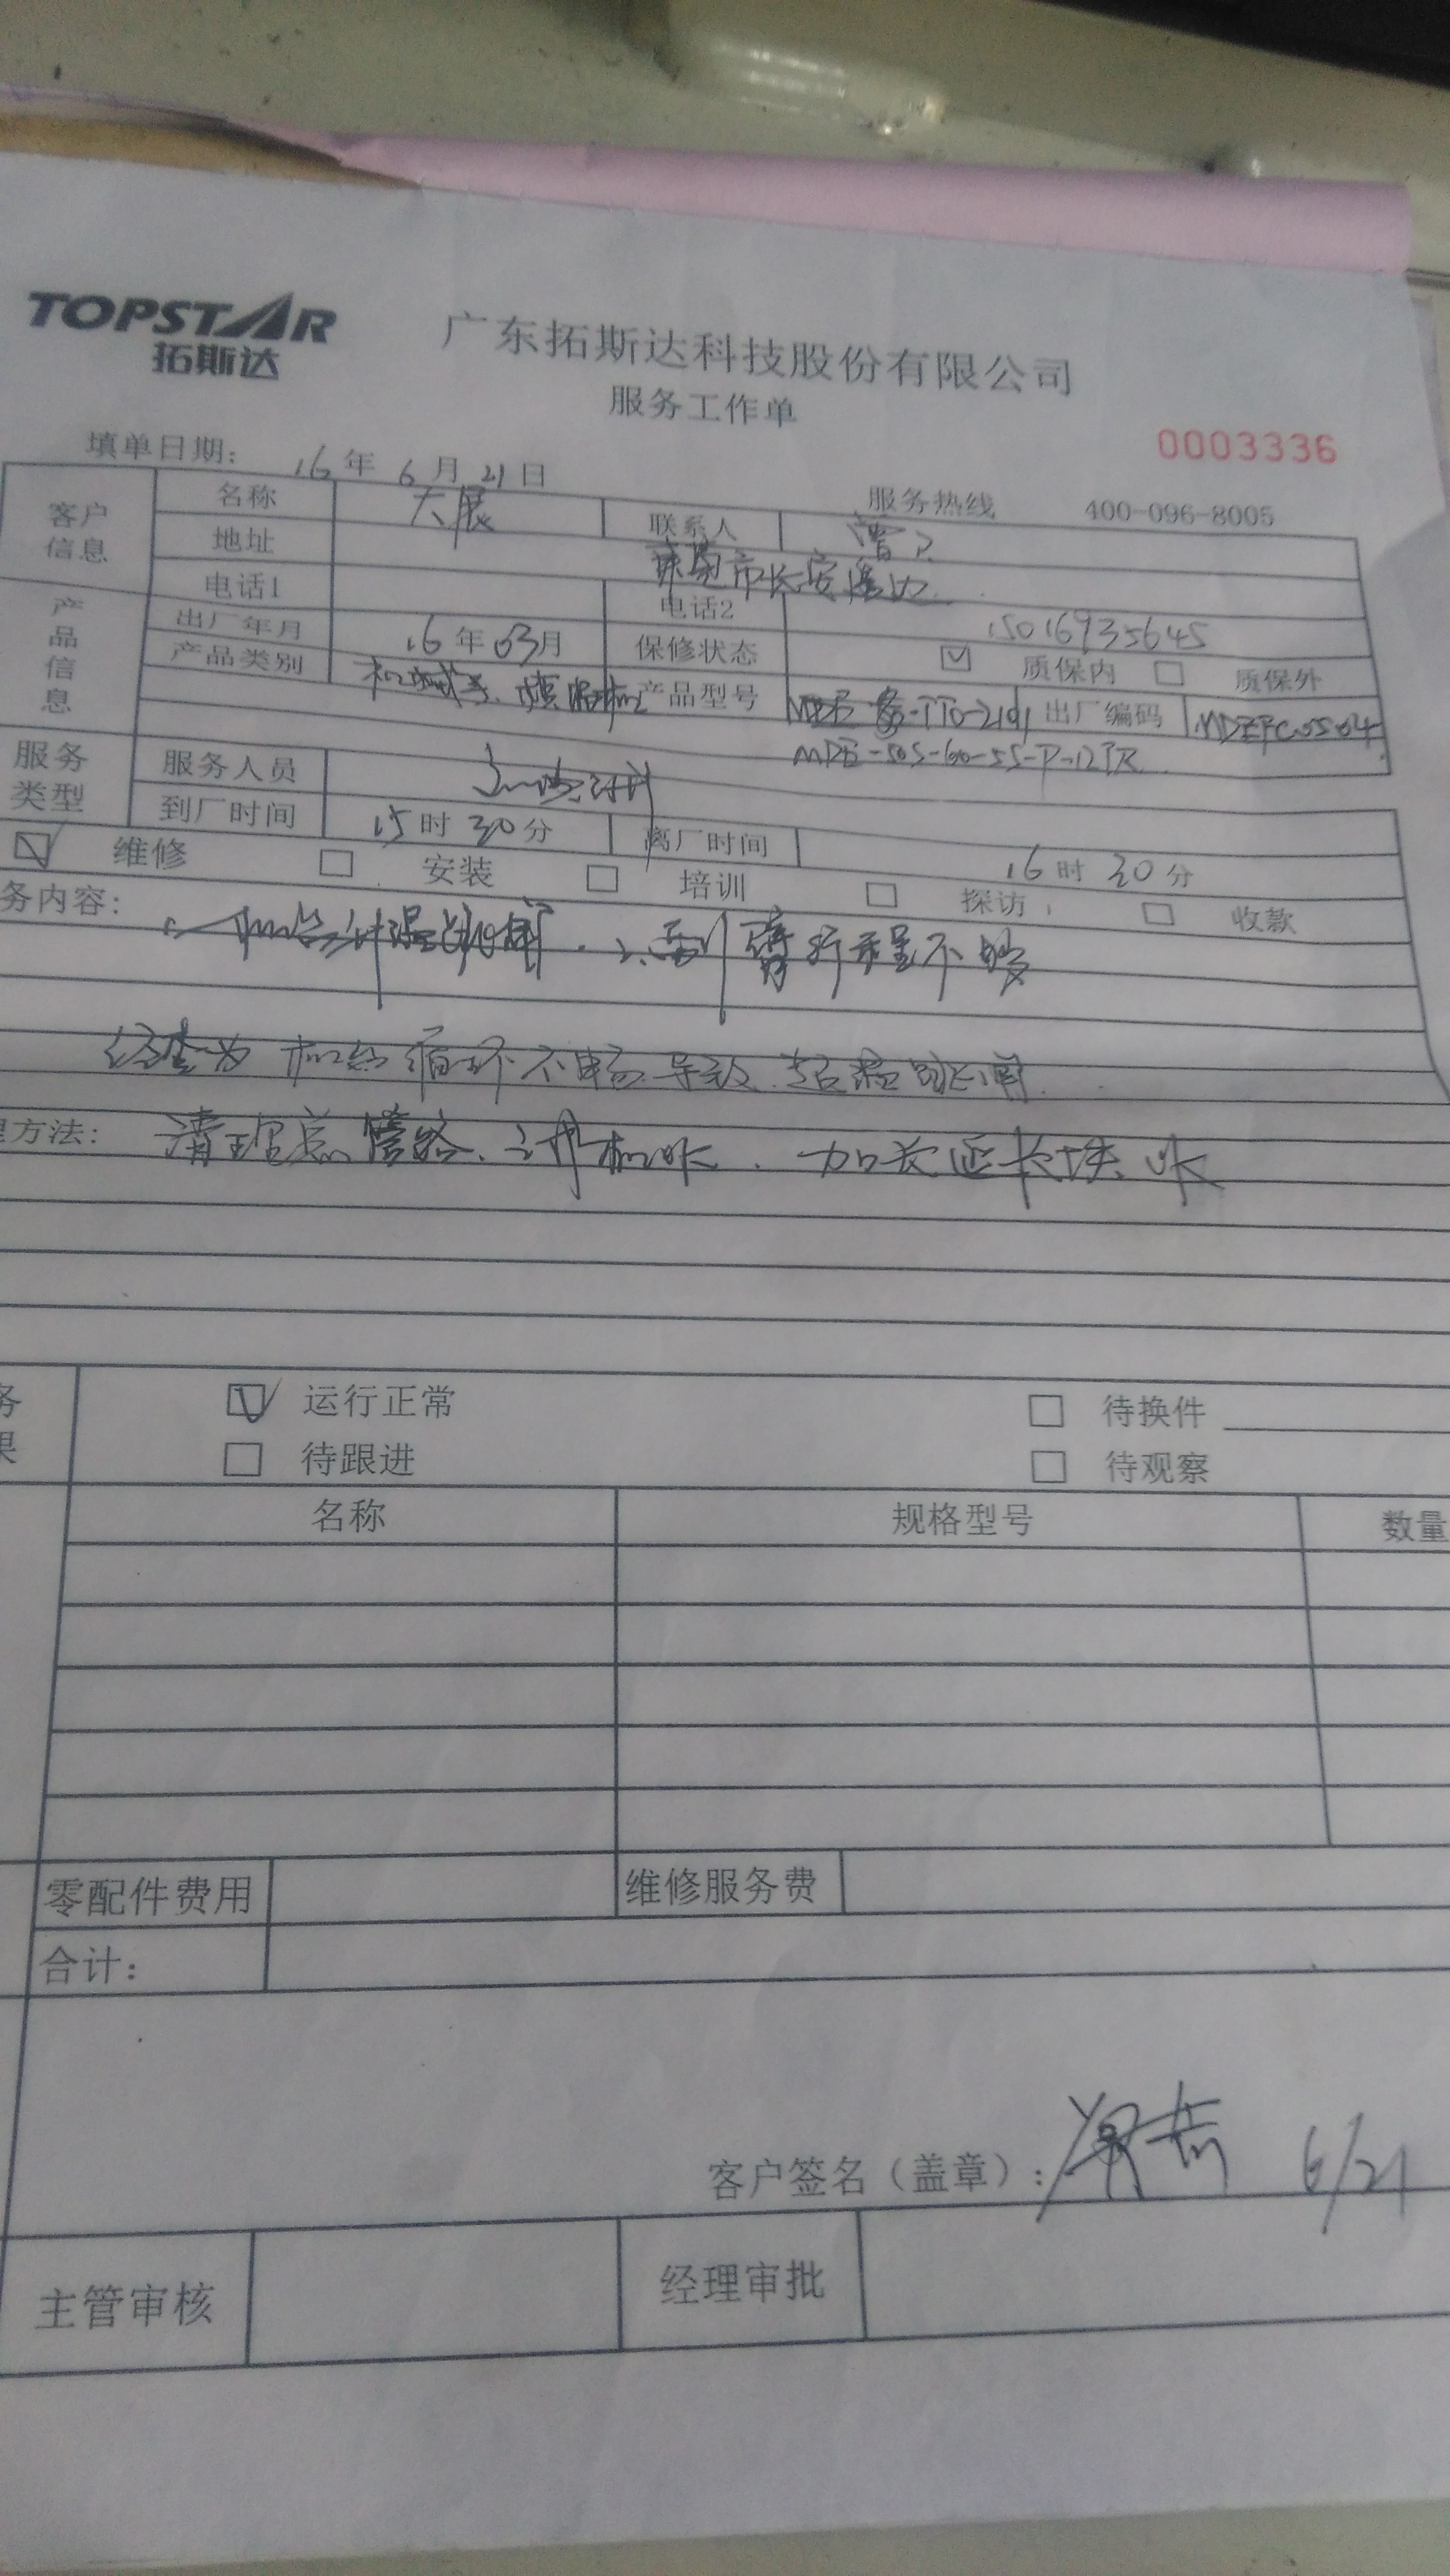 TOPSTAR
拓斯达
广东拓斯达科技股份有限公司
服务工作单
0003336
填单日期: 16年6月21日
服务热线 400-096-8005
客户信息 名称 大展 联系人 曹
地址 东莞市长安
电话1 电话2 15016935645
产品信息 出厂年月 16年03月 保修状态 质保内 质保外
产品类别 机械手、模温机 产品型号 出厂编码
MDE-50S-60-55-P-12TR
服务类型 服务人员
到厂时间 15时30分 离厂时间 16时20分
维修 安装 培训 探访 收款
务内容: 2、副臂行程不够
经查为 机台循环不畅导致 超温跳闸
理方法: 清理总管路、开机OK. 加长延长块OK
务 运行正常 待换件
果 待跟进 待观察
名称 规格型号 数量
零配件费用 维修服务费
合计:
客户签名(盖章): 6/21
主管审核 经理审批